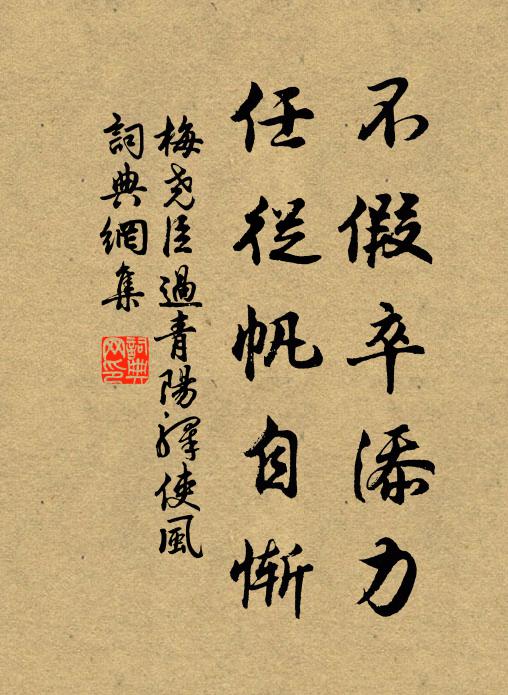 不假卒添力
任從帆自慚
梅尧臣過青陽驛使風
詞典網集
詞典网印